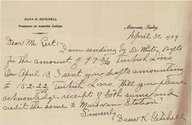 DANA K. GETCHELL
Treasurer of Anatolia College
Merzifon, Turkey
April 30, 1929
Dear Mr. Peet:
I am sending by Dr. White, Draft
for the amount of
Turkish Liras.
On April 13, I sent you draft amounting
to 152.22 Turkish Liras. Will you please
acknowledge receipt of both sums and
credit the same to Marsovan Station.
Sincerely
Dana K. Getchell